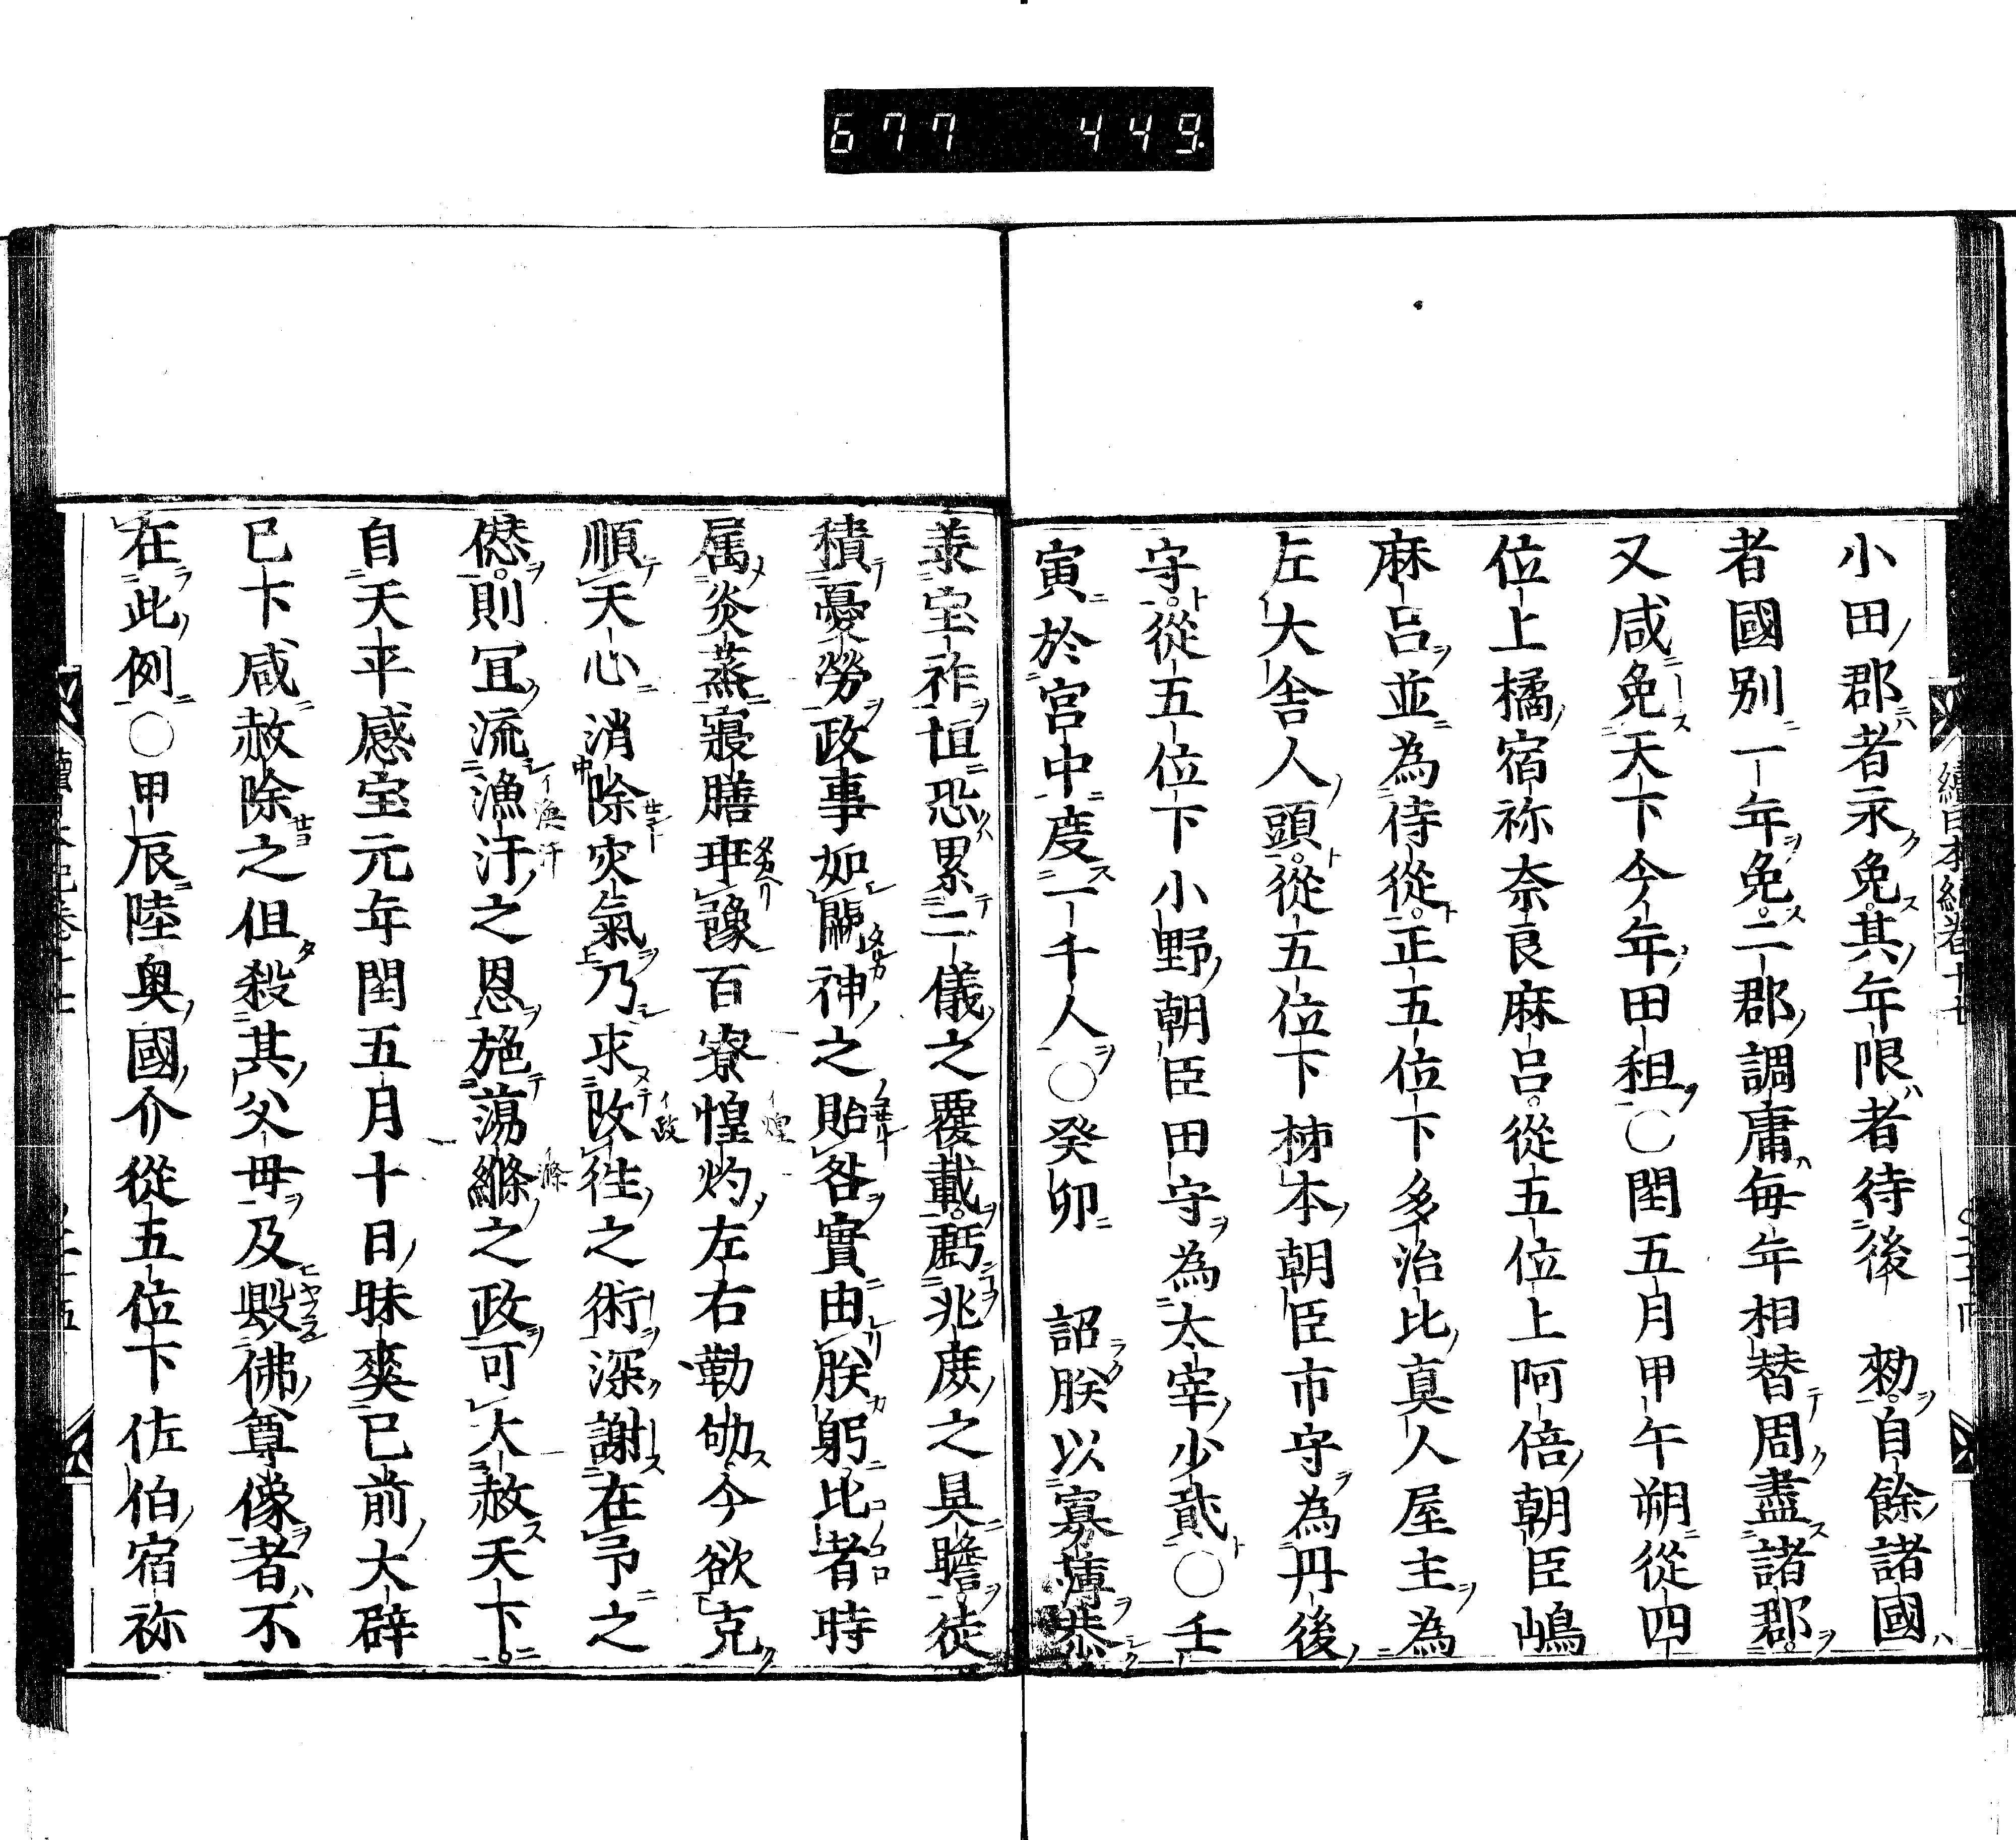 677 449
小田郡者永免其年限者待後 勅自餘諸國
者國別一年免二郡調庸毎年相替周盡諸郡
又咸免天下今年田租○閏五月甲午朔從四
位上橘宿祢奈良麻呂從五位上阿倍朝臣嶋
麻呂並為侍從正五位下多治比真人屋主為
左大舎人頭從五位下柿本朝臣市守為丹後
守從五位下小野朝臣田守為太宰少貳○壬
寅於宮中度一千人○癸卯 詔朕以寡薄恭
羕宝祚恒恐累二儀之覆載虧兆庶之具瞻徒
積憂勞政事如闕神之貽咎實由朕躬比者時
属炎蒸寢膳乖豫百寮惶灼左右勤劬今欲克
順天心消除灾氣乃求改徃之術深謝在予之
僁則冝流漁汗之恩施蕩縧之政可大赦天下
自天平感宝元年閏五月十日昧爽已前大辟
已下咸赦除之但殺其父母及毀佛尊像者不
在此例○甲辰陸奥國介從五位下佐伯宿祢